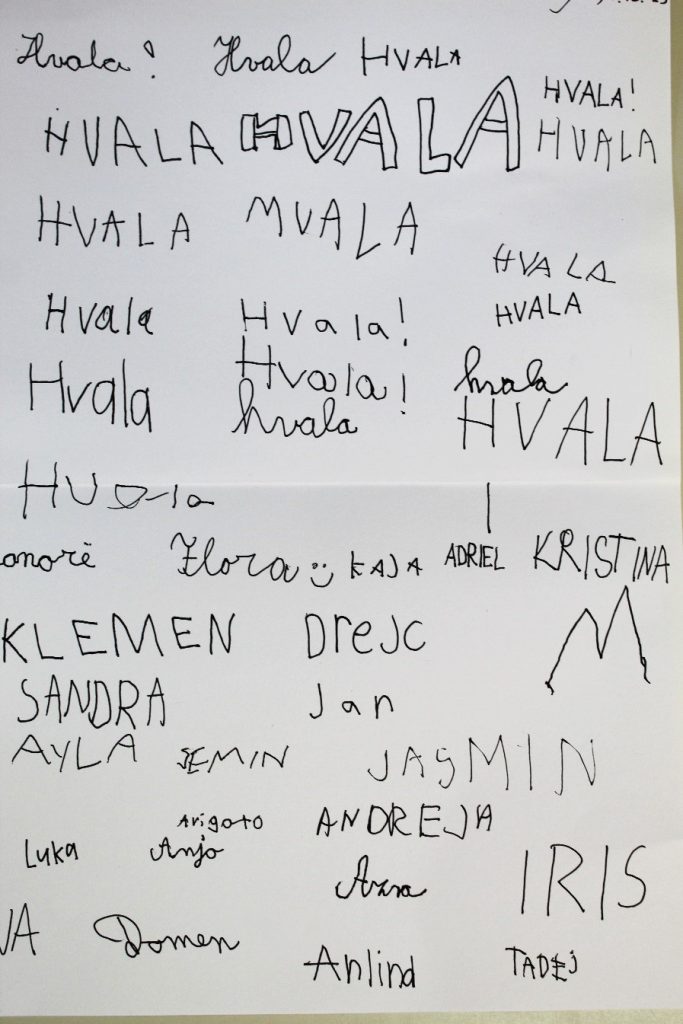 Hvala! Hvala HVALA
HVALA!
HVALA HVALA HVALA
HVALA MVALA
HVALA
Hvala Hvala! HVALA
Hvala Hvala! hvala
hvala HVALA
Hvala
onorë Flora KAJA ADRIEL KRISTINA
KLEMEN Drejc M
SANDRA Jan
AYLA SEMIN JASMIN
Arigoto ANDREJA
Luka Anjo
Azra IRIS
VA Domen
Anlind TADEJ